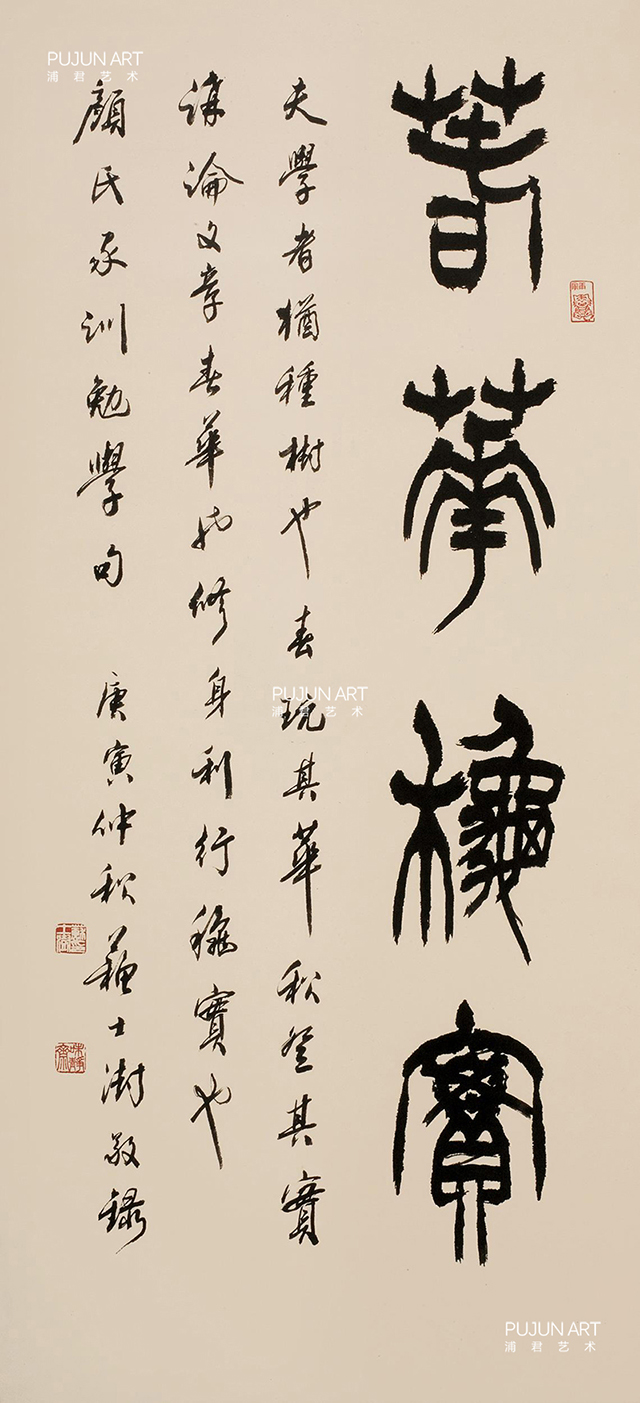 萅華龝實
夫學者猶種樹也春玩其華秋登其實
講論文章春華也修身利行穐實也
顏氏家訓勉學句 庚寅仲秋蘇士澍敬錄
PUJUN ART
浦君艺术
PUJUN ART
浦君艺术
PUJUN ART
浦君艺术